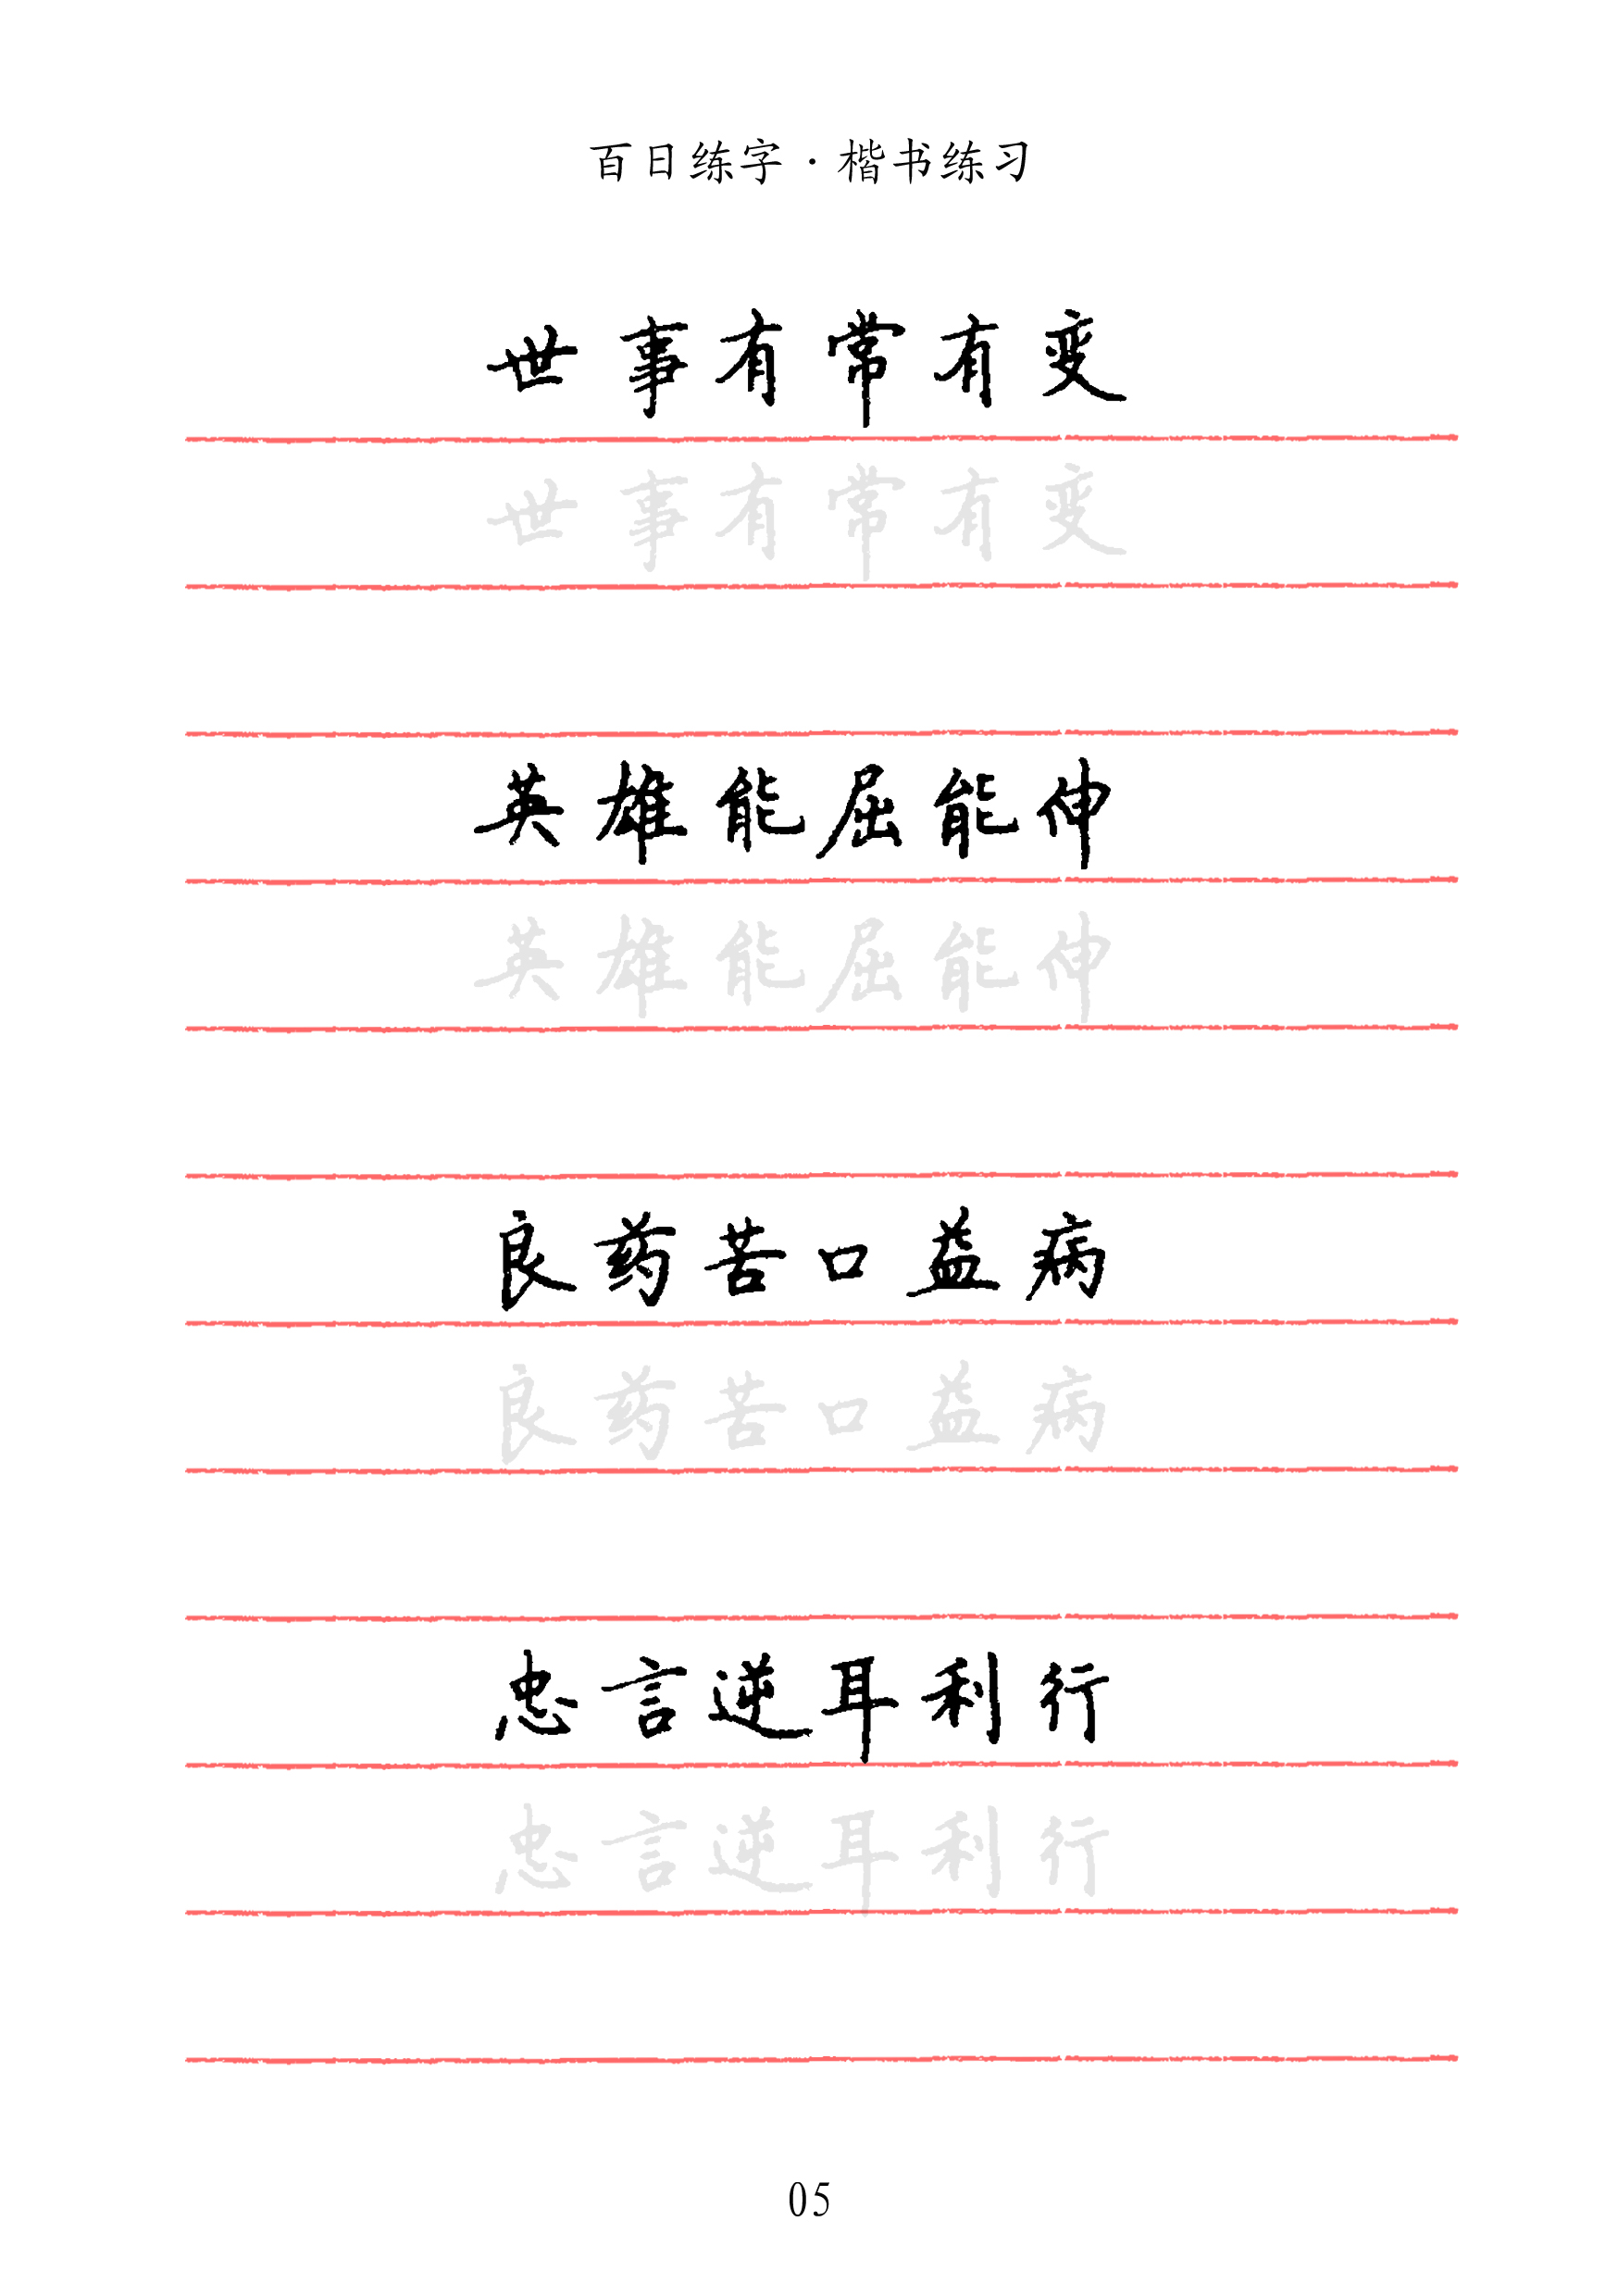 百日练字·楷书练习
世事有常有变
世事有常有变
英雄能屈能伸
英雄能屈能伸
良药苦口益病
良药苦口益病
忠言逆耳利行
忠言逆耳利行
05